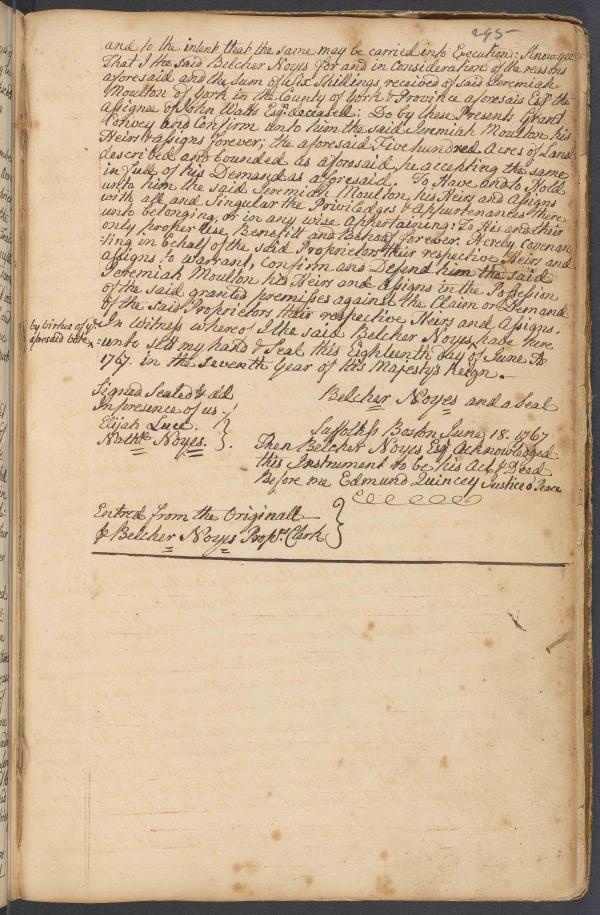 295
and to the intent that the same may be carried into Execution: Know ye
That I the said Belcher Noyes for and in Consideration of the reasons
aforesaid and the Sum of Six Shillings, received of said Jeremiah
Moulton of York in the County of York & Province aforesaid Esqr the
Assignee of John Watts Esqr deceased; Do by these Presents Grant
Convey and Confirm unto him the said Jeremiah Moulton his
Heirs & Assigns forever; the aforesaid Five hundred Acres of Land
described and bounded as aforesaid, he accepting the same
in full of his Demand as aforesaid. To Have and to Hold
unto him the said Jeremiah Moulton, his Heirs and Assigns
with all and Singular the Priviledges & Appurtenances there
unto belonging, or in any wise Appertaining: To His and their
only proper Use, Benefitt and Behoof forever. Hereby Covenan
ting in behalf of the said Proprietors their respective Heirs and
assigns to Warrant, Confirm and Defend him the said
Jeremiah Moulton his Heirs and Assigns in the Possession
of the said granted premisses against the Claim or Demand
of the said Proprietors their respective Heirs and Assigns.
by virtue of ye
aforesaid Vote
In Witness whereof I the said Belcher Noyes, have here
unto sett my hand & Seal this Eighteenth day of June Ao
1767. in the Seventh Year of His Majesty's Reign.
Signed Sealed & dd
In presence of us.
Elijah Luce.
Nathl Noyes.
Belcher Noyes and a Seal
Suffolk Ss Boston June 18. 1767
Then Belcher Noyes Esqr Acknowledged
this Instrument to be his Act & Deed
Before me Edmund Quincey Justice o Peace
Entred from the Originall
p Belcher Noyes Proprs Clark